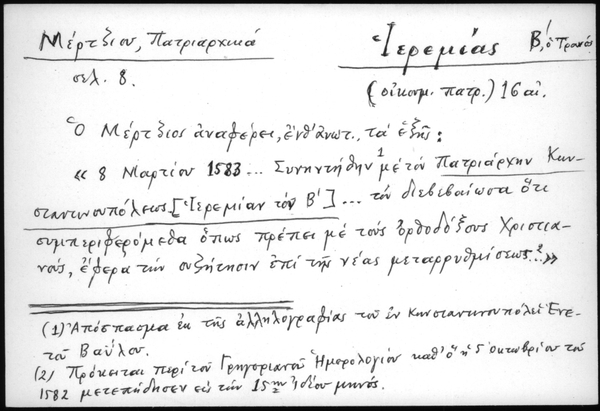 Μέρτζιου, Πατριαρχικά
σελ. 8.
Ἱερεμίας Β΄, ὁ Τρανός
(οἰκουμ. πατρ.) 16 αἰ.
Ὁ Μέρτζιος ἀναφέρει, ἔνθ' ἀνωτ., τά ἑξῆς:
« 8 Μαρτίου 1583 ... Συνηντήθην¹ μέ τόν Πατριάρχην Κων-
σταντινουπόλεως [Ἱερεμίαν τόν Β΄] ... τόν διεβεβαίωσα ὅτι
συμπεριφερόμεθα ὅπως πρέπει μέ τούς ὀρθοδόξους Χριστια-
νούς, ἔφερα τήν συζήτησιν ἐπί τῆς νέας μεταρρυθμίσεως²...»
(1) Ἀπόσπασμα ἐκ τῆς ἀλληλογραφίας τοῦ ἐν Κωνσταντινουπόλει Ἐνε-
τοῦ Βαΐλου.
(2) Πρόκειται περί τοῦ Γρηγοριανοῦ Ἡμερολογίου καθ' ὅ ἡ 5 ὀκτωβρίου τοῦ
1582 μετεπήδησεν εἰς τήν 15ην ἰδίου μηνός.